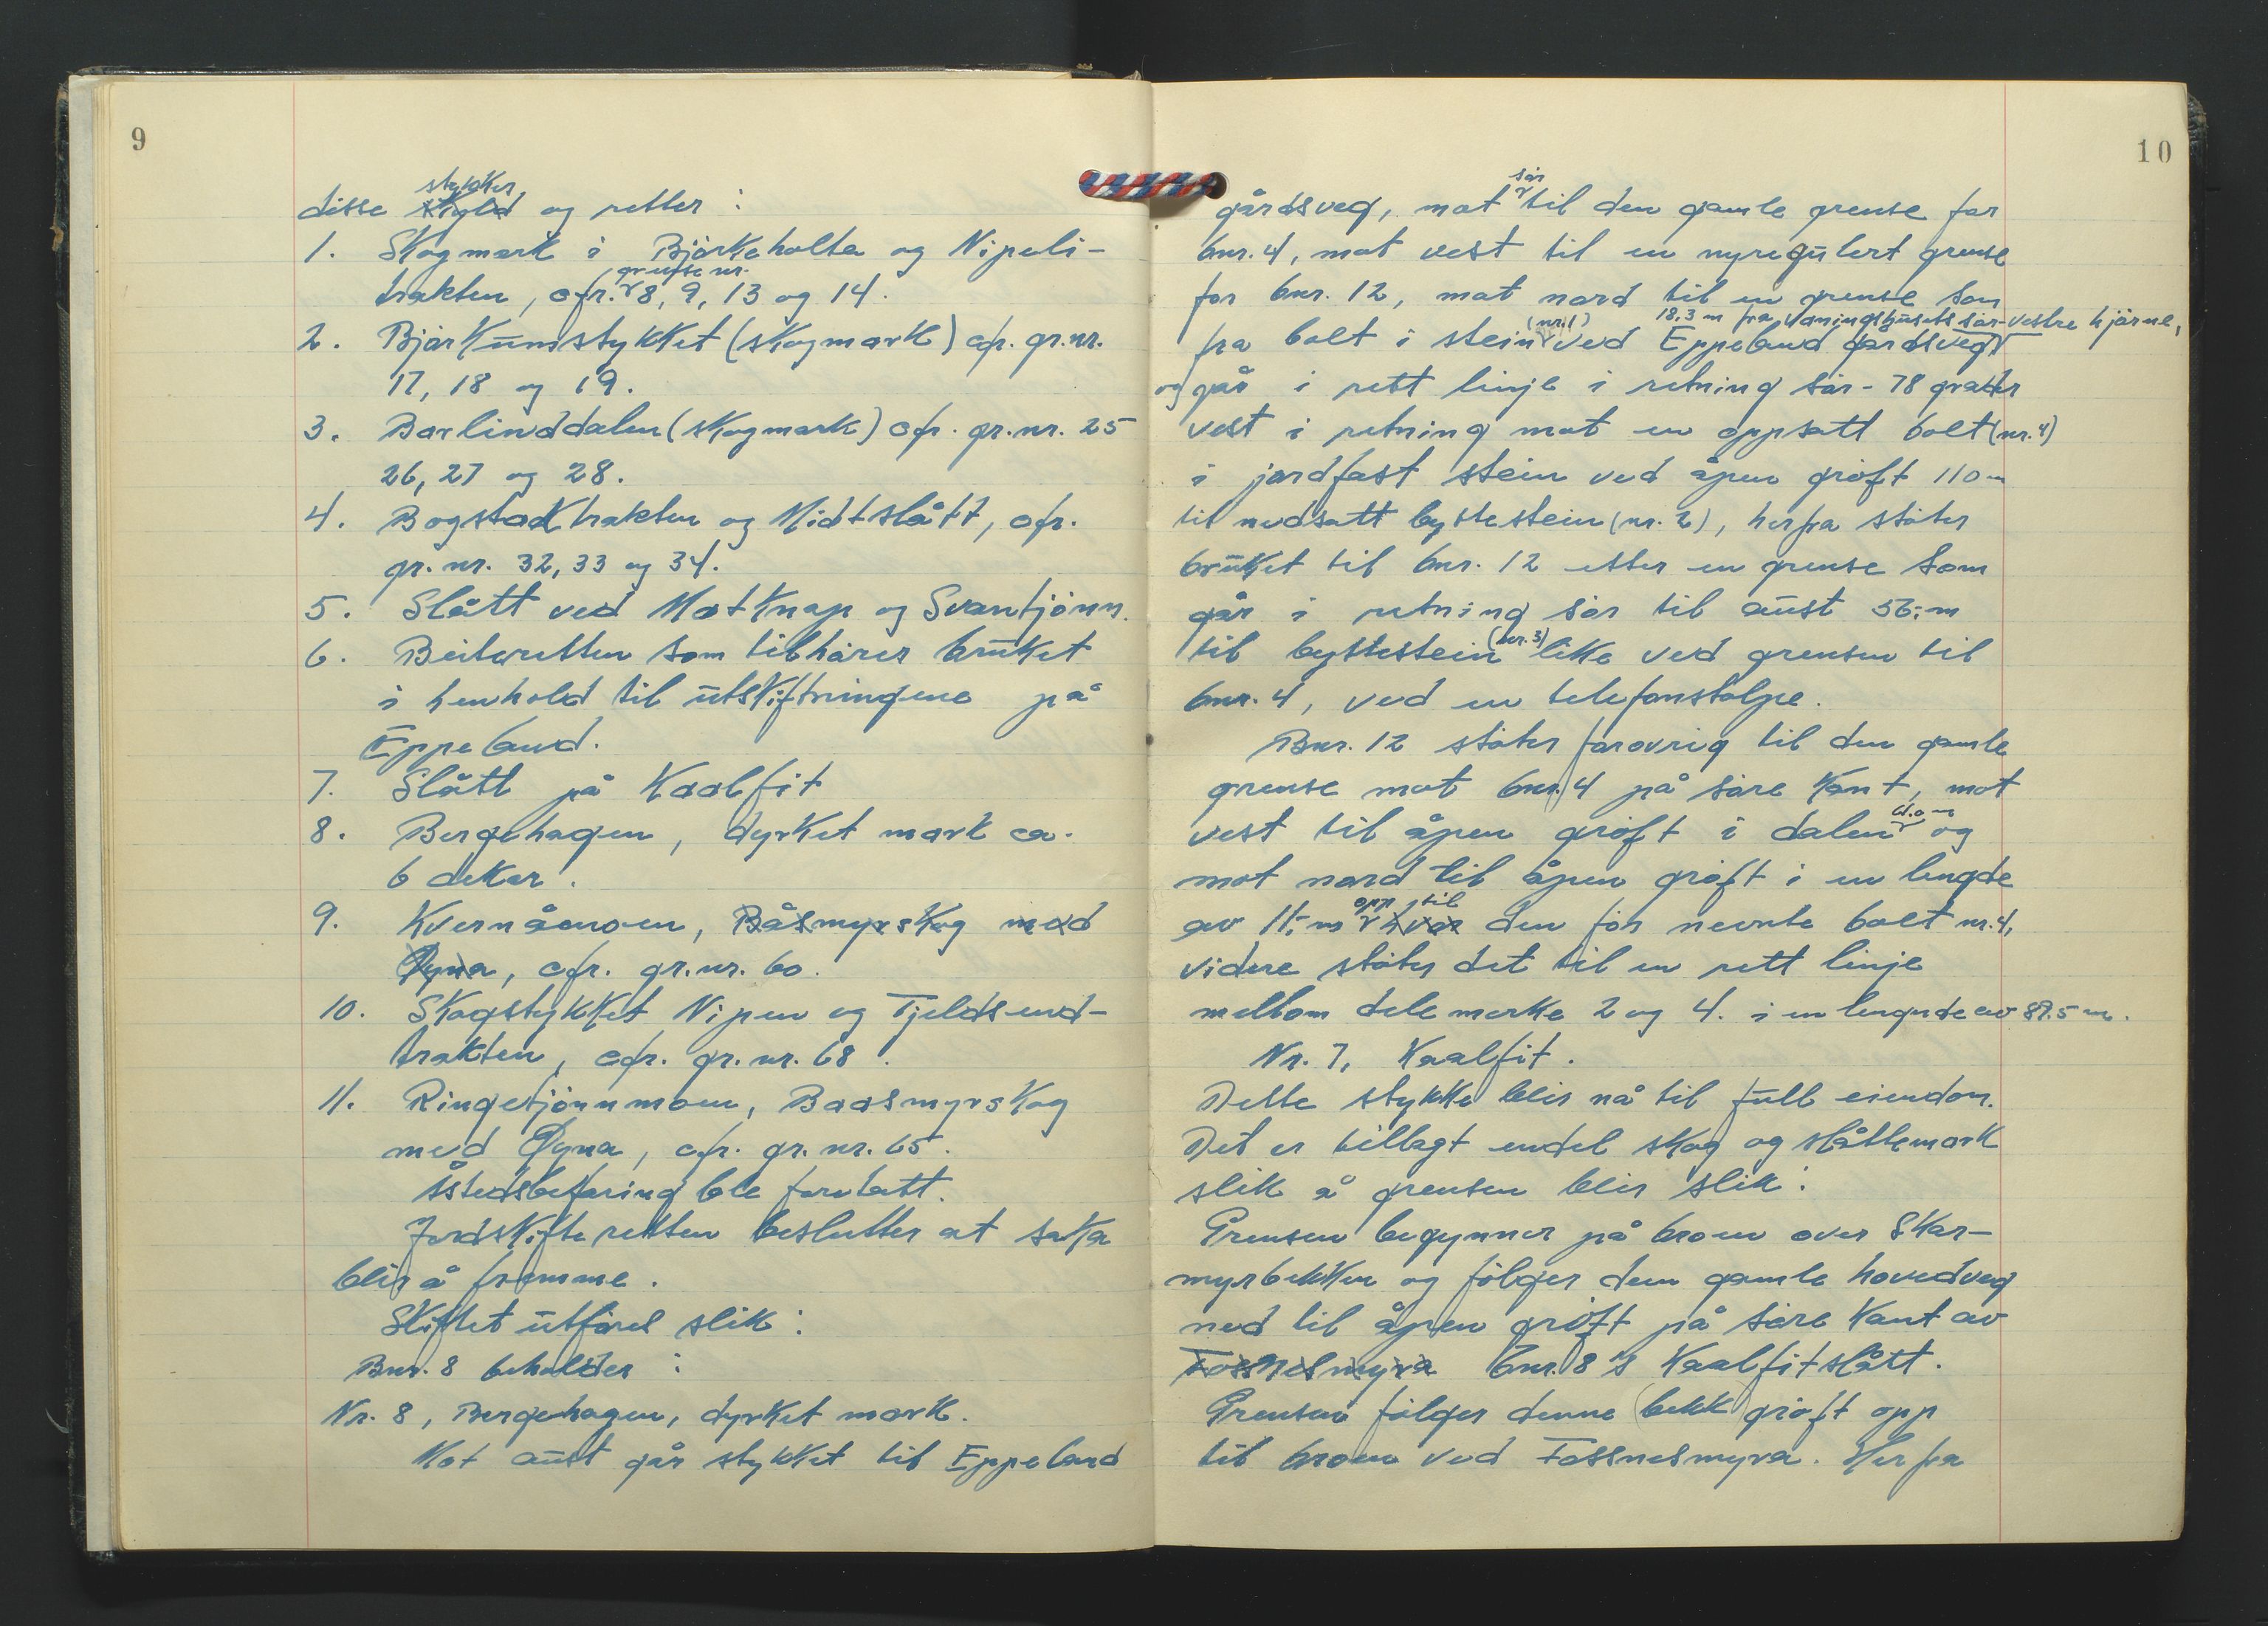 9
disse stykker og retter :
1. Skogmark i Bjørkeholta og Nipeli-
trakten, cfr. grense nr. 8, 9, 13 og 14.
2. Bjørkumstykket (skogmark) cfr. gr.nr.
17, 18 og 19.
3. Barlinddalen (skogmark) cfr. gr.nr. 25
26, 27 og 28.
4. Bogstadtrakten og Midtslått, cfr.
gr. nr. 32, 33 og 34.
5. Slått ved Matknap og Svantjønn.
6. Beiteretten som tilhører bruket
i henhold til utskiftningene på
Eppeland.
7. Slått på Kaalfit
8. Bergehagen, dyrket mark ca.
6 dekar.
9. Kvernåmoen, Båsmyrskog med
Dyna, cfr. gr.nr. 60.
10. Skogstykket Nipen og Tjeldsund-
trakten, cfr. gr. nr. 68.
11. Ringetjønnmoen, Baasmyrskog
med Dyna, cfr. gr. nr. 65.
Åstedsbefaring ble foretatt.
Jordskifteretten beslutter at saka
blir å fremme.
Skiftet utføres slik :
Bnr. 8 beholder :
Nr. 8, Bergehagen, dyrket mark.
Mot aust går stykket til Eppeland
10
gårdsveg, mot sør til den gamle grense for
bnr. 4, mot vest til en nyregulert grense
for bnr. 12, mot nord til en grense som
fra bolt i stein (nr. 1) ved Eppeland gardsveg 18,3 m fra våningshusets sør-vestre hjørne,
og går i rett linje i retning sør - 78 grader
vest i retning mot en oppsatt bolt (nr. 4)
i jordfast stein ved åpen grøft 110 m
til nedsatt byttestein (nr. 2), herfra støter
bruket til bnr. 12 etter en grense som
går i retning sør til aust 56,- m
til byttestein (nr. 3) like ved grensen til
bnr. 4, ved en telefonstolpe.
Bnr. 12 støter forøvrig til den gamle
grense mot bnr. 4 på søre kant, mot
vest til åpen grøft i dalen og
mot nord til åpen grøft i en lengde
av 11,- m opp til den før nevnte bolt nr. 4,
videre støter det til en rett linje
mellom dele merke 2 og 4. i en lengde av 87.5 m.
Nr. 7, Kaalfit.
Dette stykke blir nå til full eiendom.
Det er tillagt endel skog og slåttemark
slik å grensen blir slik :
Grensen begynner på broen over Skar-
myrbekken og følger den gamle hovedveg
ned til åpen grøft på søre kant av
Fossnesmyra bnr. 8's Kaalfitslått.
Grensen følger denne bekk grøft opp
til broen ved Fossnesmyra. Herfra